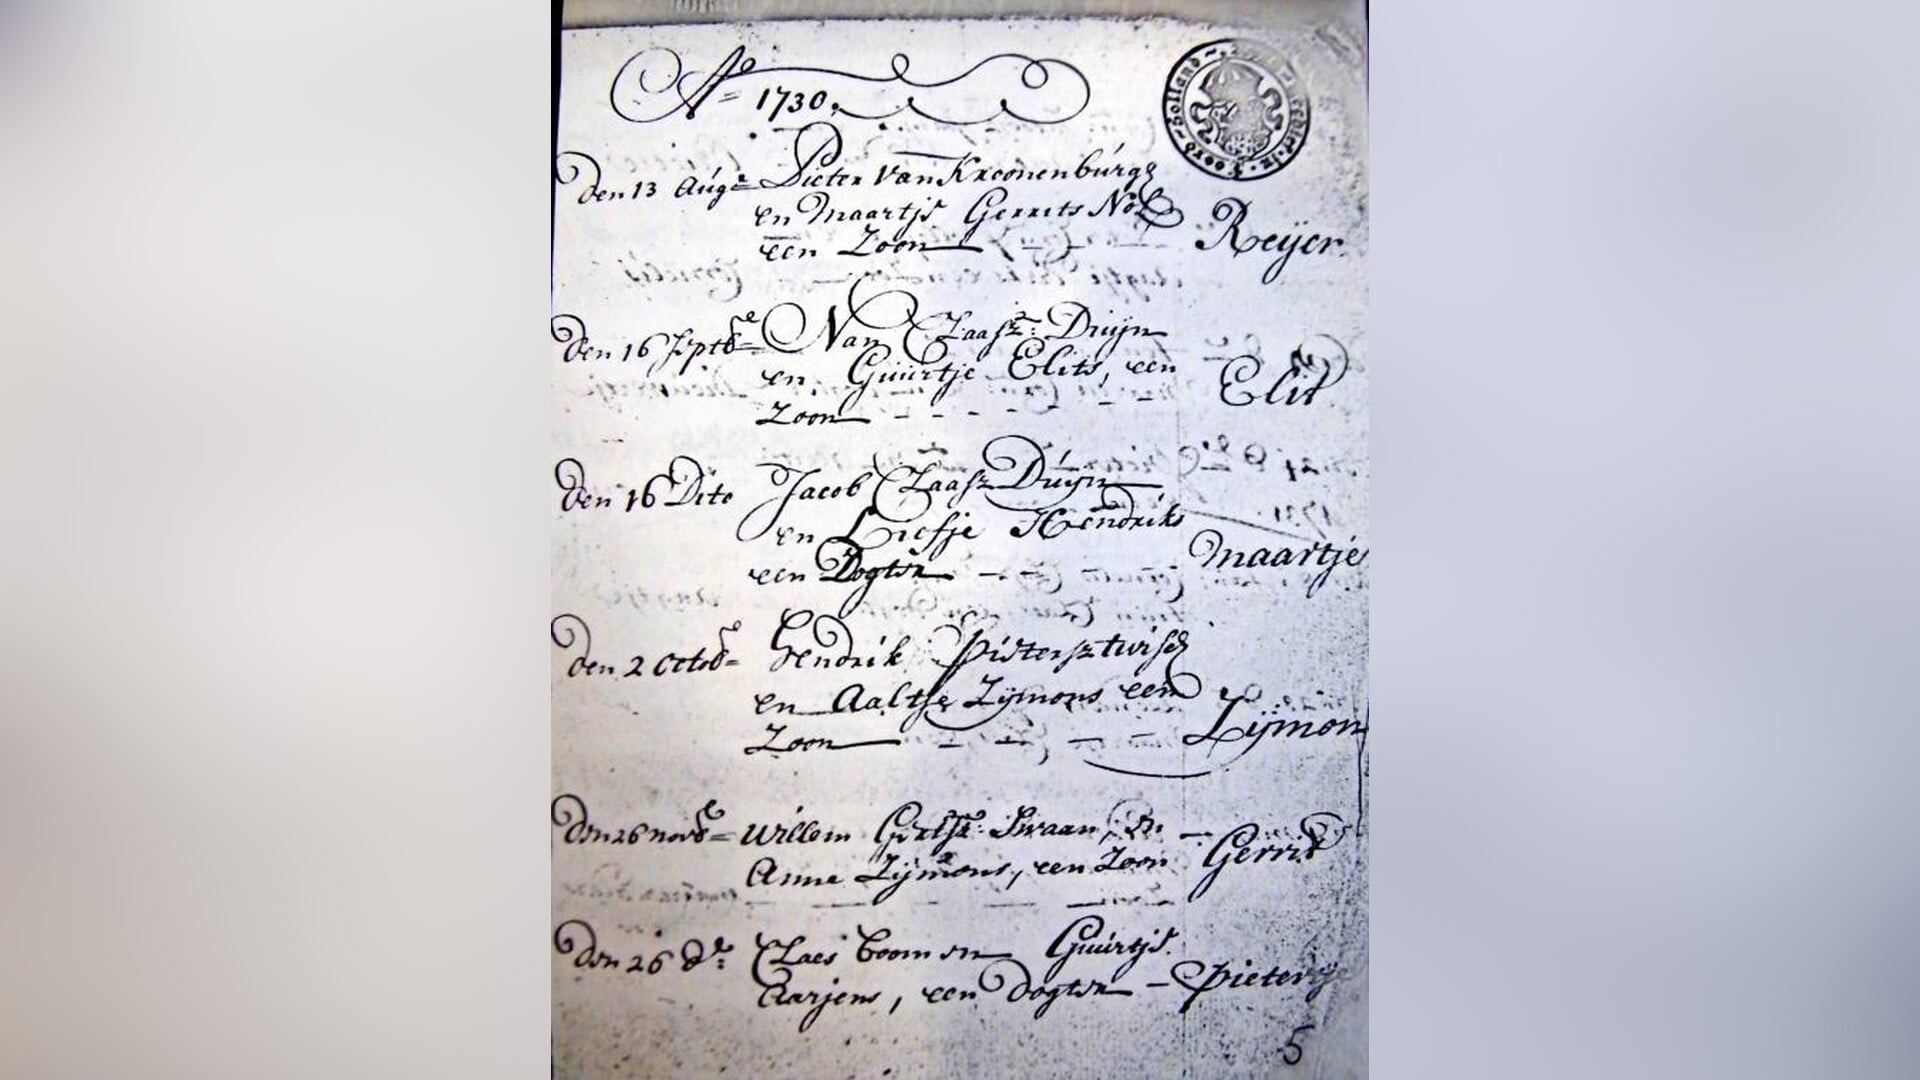 Ao 1730.
Den 13 Auge Pieter van Kroonenburg
en Maartje Gerrits Nol Reyer
een Zoon
Den 16 Septbre Nan Claasz: Duijn
en Guurtje Elits, een Elit
Zoon
Den 16 Dito Jacob Claasz Duijn
en Liefje Hendriks
een Dogter Maartje
Den 2 Octobre Hendrik Pietersz twisch
en Aaltje Zijmons een
Zoon Zijmon
Den 26 Novbre Willem Gertsz: Swaan, en
Anne Zijmons, een Zoon Gerrit
Den 26 do: Claes Boom en Guurtje
Aarjens, een Dogter Pietertje
5